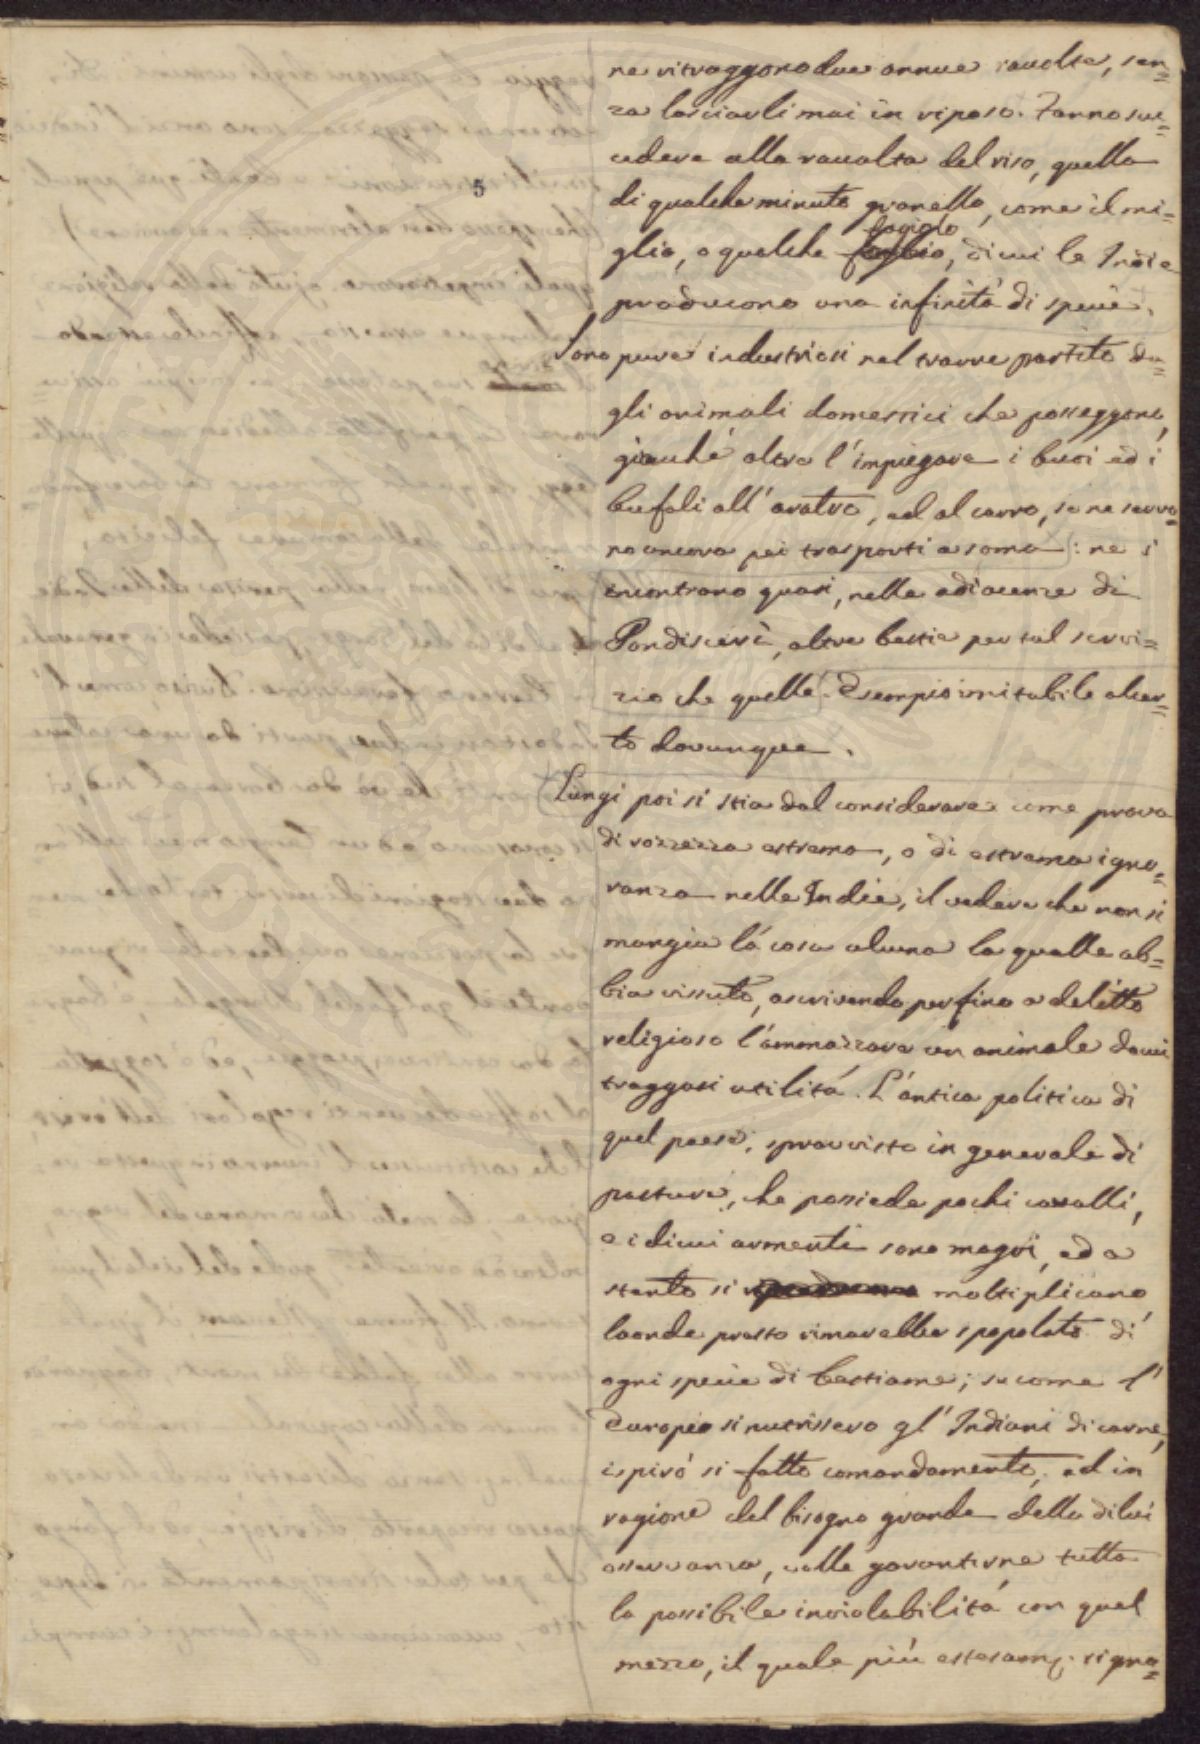 5
ne ritraggono due annue raccolte, sen=
za lasciarli mai in riposo. Fanno suc=
cedere alla raccolta del riso, quella
di qualche minuto granello, come il mi-
fagiolo
glio, o qualche, di cui le Indie
producono una infinità di specie.
Sono pure industriosi nel trarre partito da=
gli animali domestici che posseggono,
giacchè oltre l'impiegare i buoi ed i
bufali all'aratro, ed al carro, se ne servo=
no ancora pei trasporti a soma: ne s'
incontrano quasi, nelle adiacenze di
Pondiscerì, altre bestie per tal servi=
zio che quelle. Esempio imitabile alcer=
to dovunque.
Lungi poi si stia dal considerare come prova
di rozzezza estrema, o di estrema igno=
ranza nelle Indie, il vedere che non si
mangia là cosa alcuna la qualle ab=
bia vissuto, ascrivendo perfino a delitto
religioso l'ammazzare un animale da cui
traggasi utilità. L'antica politica di
quel paese, sprovvisto in generale di
pasture, che possiede pochi cavalli,
e i di cui armenti sono magri, ed a
stento si moltiplicano
laonde presto rimarebbe spopolato di
ogni specie di bestiame; se come l'
Europeo si nutrissero gl'Indiani di carne,
ispirò si fatto comandamento, ed in
ragione del bisogno grande della di lui
osservanza, volle garantirne tutta
la possibile inviolabilità con quel
mezzo, il quale più estesam. signo=